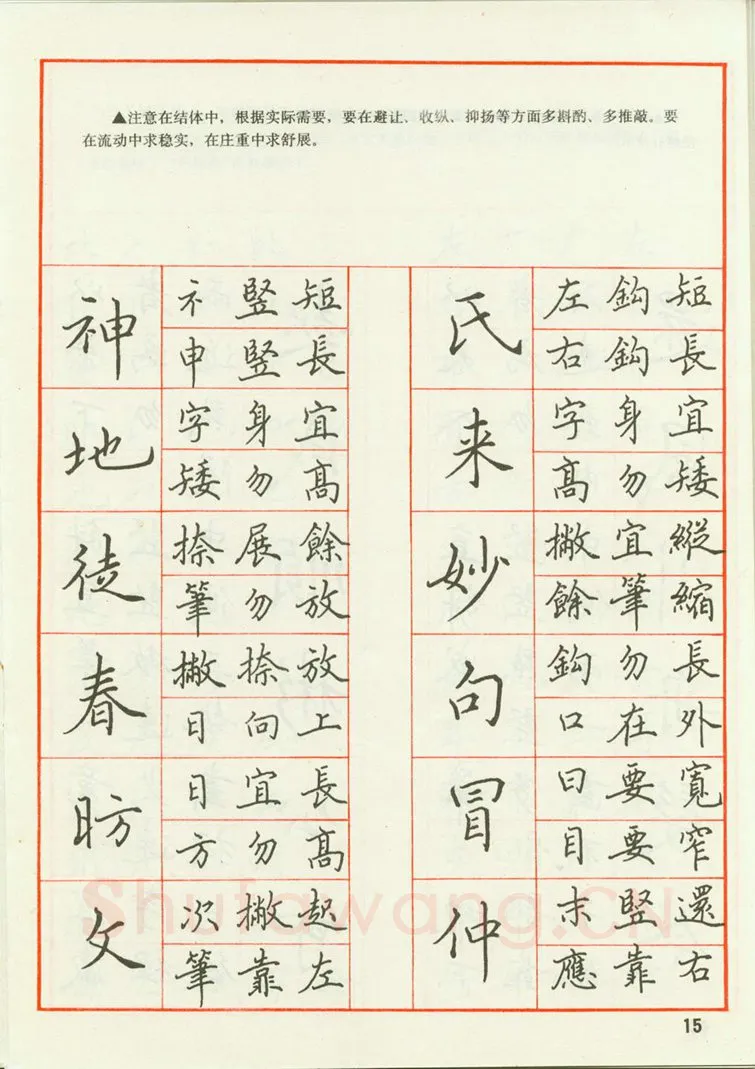 ▲注意在结体中，根据实际需要，要在避让、收纵、抑扬等方面多斟酌、多推敲。要
在流动中求稳实，在庄重中求舒展。
神
礻竖短
申竖長
地
字身宜
矮勿高
徒
捺展餘
筆勿放
春
撇捺放
日向上
昉
日宜長
方勿高
攵
次撇起
筆靠左
氏
左鈎短
右鈎長
来
字身宜
高勿矮
妙
撇宜縱
餘筆縮
句
鈎勿長
口在外
冒
曰要寬
目要窄
仲
末竪還
應靠右
Shufawang.CN
15